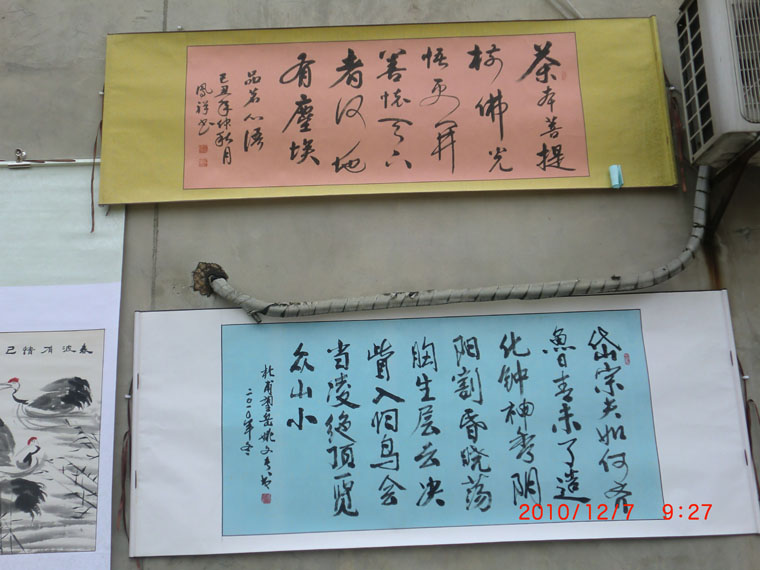 茶本菩提
树佛光
悟更开
善怀天下
者何地
有塵埃
品茗心语
己丑年仲秋月
鳳祥书
岱宗夫如何齐
鲁青未了造
化钟神秀阴
阳割昏晓荡
胸生层云决
眥入归鸟会
当凌绝顶一览
众山小
杜甫望岳姚文书
二〇一〇年冬
春波有情
2010/12/7 9:27